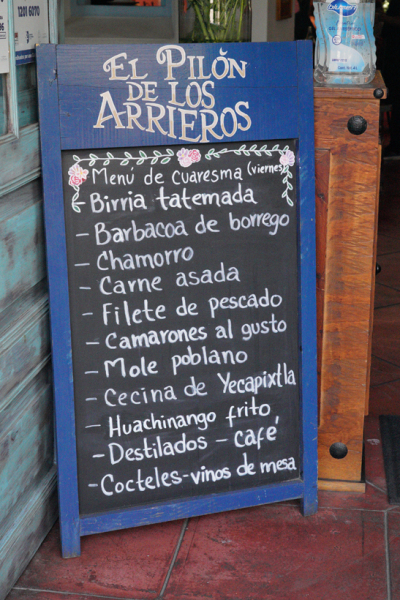 1201 6070
EL PILÓN
DE LOS
ARRIEROS
Menú de Cuaresma (viernes)
Birria tatemada
- Barbacoa de borrego
- Chamorro
- Carne asada
- Filete de pescado
- Camarones al gusto
- Mole poblano
- Cecina de Yecapixtla
- Huachinango frito,
- Destilados - café
- Cocteles - vinos de mesa